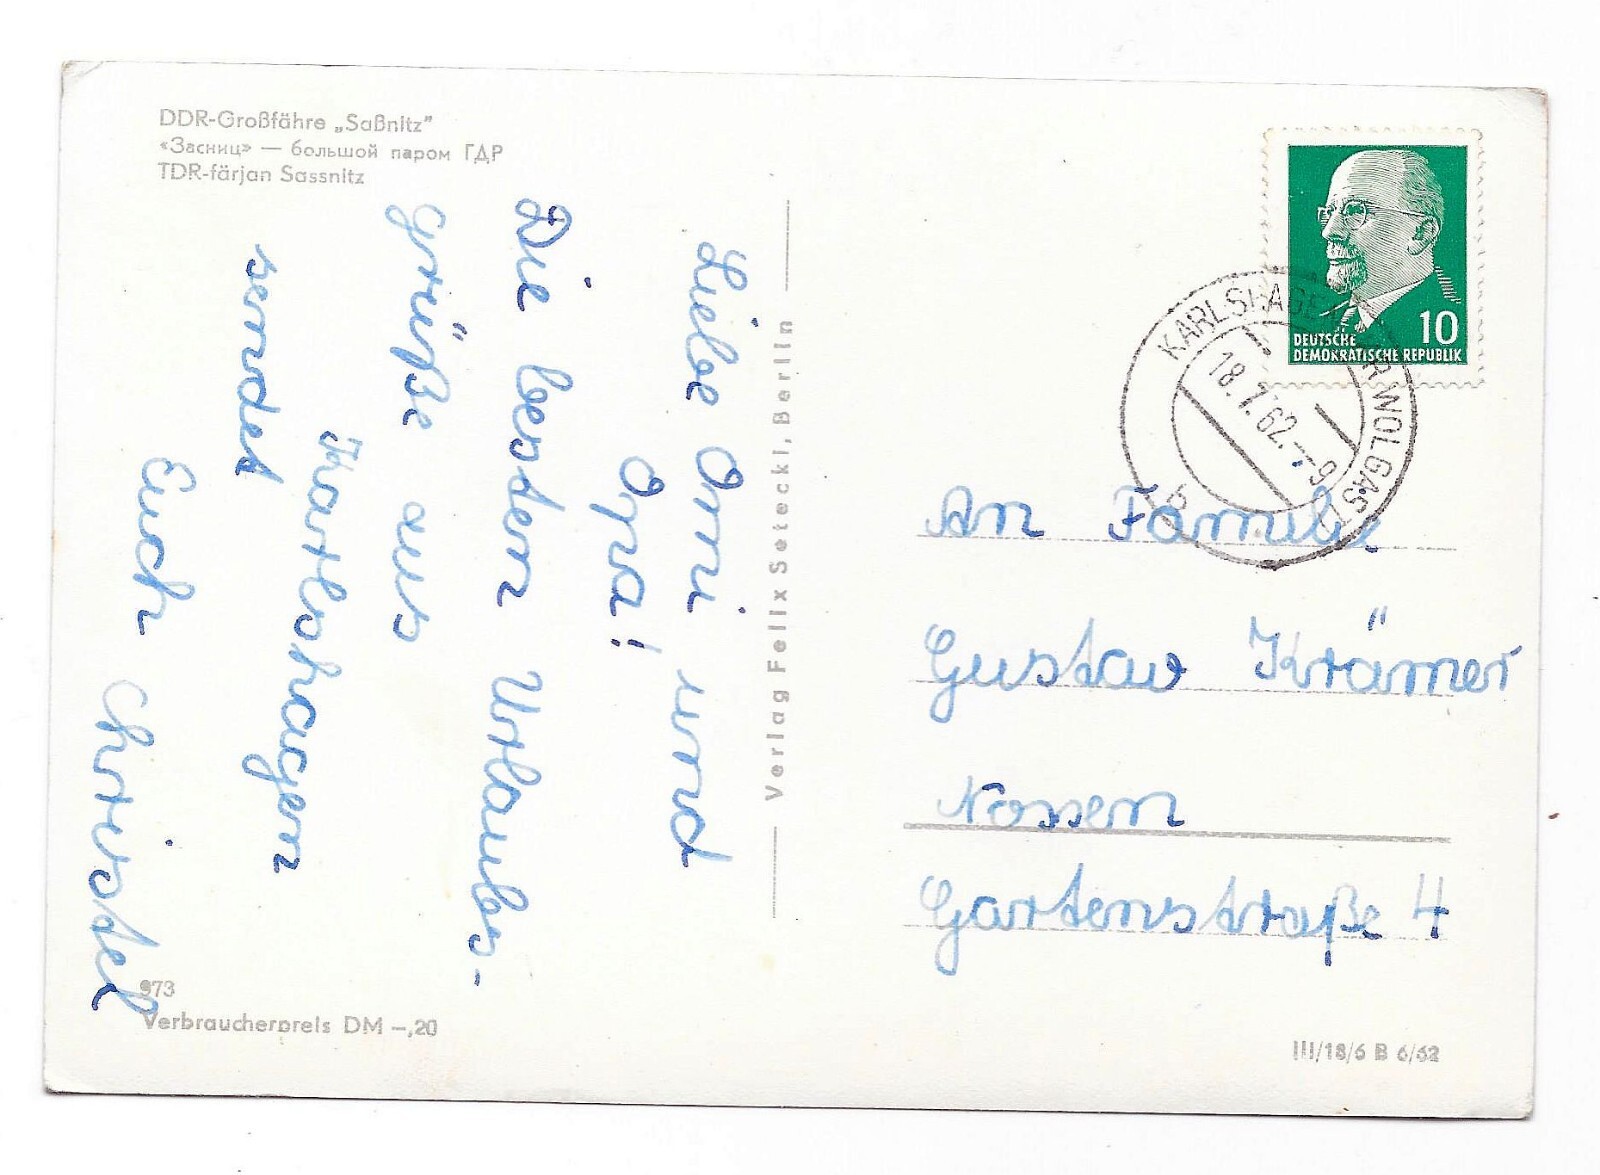 DDR-Großfähre „Saßnitz"
«Засниц» — большой паром ГДР
TDR-färjan Sassnitz
Liebe Omi und
Opa!
Die besten Urlaubs-
grüße aus
Karlshagen
sendet
Euch Christel
973
Verbraucherpreis DM –,20
Verlag Felix Setecki, Berlin
10
DEUTSCHE
DEMOKRATISCHE REPUBLIK
KARLSHAGEN ÜBER WOLGAST
18.7.62.-9
b
An Familie
Gustav Krämer
Nossen
Gartenstraße 4
III/18/6 B 6/62